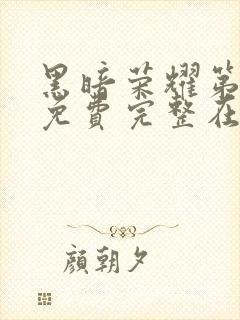 黑暗荣耀第
免費完整在
顏朝夕